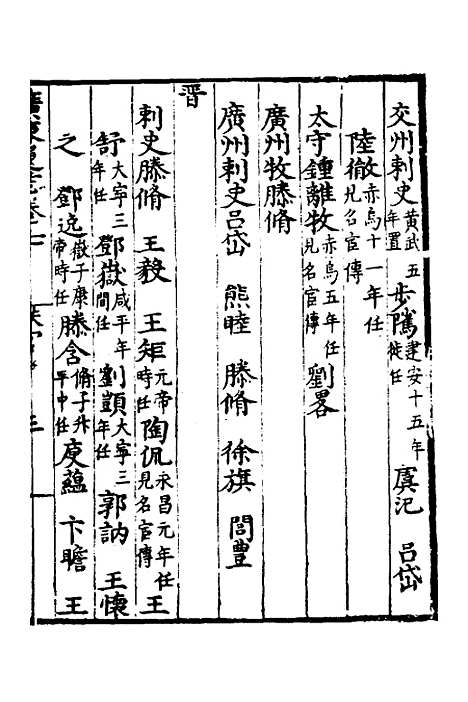 交州刺史黃武五年置 步隲建安十五年徙任 虞汜 呂岱
陸徹赤烏十一年任見名宦傳
太守鍾離牧赤烏五年任見名宦傳 劉畧
廣州牧滕脩
廣州刺史呂岱 熊睦 滕脩 徐旗 閭豐
晉
刺史滕脩 王毅 王矩元帝時任 陶侃永昌元年任見名宦傳 王
舒大寧三年任 鄧嶽咸平年間任 劉顗大寧三年任 郭訥 王懷
之 鄧逸嶽子康帝時任 滕含脩子升平中任 庾蘊 卞瞻 王